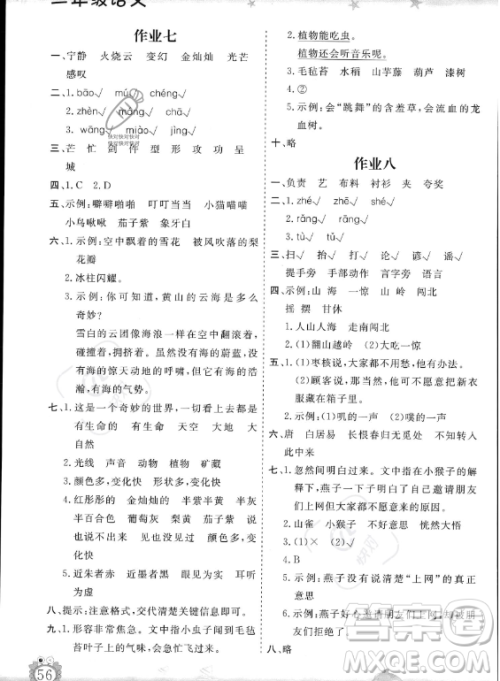 三年级语文
作业七
一、宁静 火烧云 变幻 金灿灿 光芒
感叹
二、1.bāo✓ mú✓ chéng✓
2.zhèn✓ máng✓
3.wāng✓ miào✓ jìng✓
三、芒 忙 剑 件 型 形 攻 功 呈
城
四、1.C 2.D
五、示例：噼噼啪啪 叮叮当当 小猫喵喵
小鸟啾啾 茄子紫 象牙白
六、1.示例：空中飘着的雪花 被风吹落的梨
花瓣
2.冰柱闪耀。
3.示例：你可曾知道，黄山的云海是多么
奇妙？
雪白的云团像海浪一样在空中翻滚着，
碰撞着，拥挤着。既有海的蔚蓝，又有
海的惊天动地的呼啸，真是有海的风度，
有海的气势。
七、1.这是一个奇妙的世界，一切看上去都是
有生命的 有生命 天空 水中 植物
大自然
2.光线 声音 动物 植物 矿藏
3.颜色多，而且变化快
4.红彤彤的 金灿灿的 半紫半黄的
半灰半百合色 葡萄灰 梨黄 茄子紫
变化快
5.近朱者赤 近墨者黑 眼见为实 耳听
为虚
八、提示：注意格式，交代清楚关键信息即可。
九、1.我非常焦急。文中指小虫子闻到毛毡
苔叶子上的味道，就情不自禁地爬过去。
56
2.植物能吃虫。
植物还会听音乐呢。
3.毛毡苔 水稻 马兰草 葫芦 漆树
4.②
5.示例：会“跳舞”的含羞草，会流血的龙
血树。
十、略
作业八
一、负责 艺 布料 衬衫 夹 夸奖
二、1.zhé✓ zhé✓
2.rǎng✓ rāng✓
3.tù✓ tǔ✓
三、扫✓ 抬✓ 讨✓ 论✓ 谚✓ 谣✓
提手旁 手部动作 言字旁 语言
四、示例：山海 一惊 山岭 闯北
摇摆 甘休
1.人山人海 走南闯北
2.(1)翻山越岭 (2)大吃一惊
五、1.枣核说，大家都不用犯愁。
2.(1)顾客说，他可不愿意把新衣服
存起来。
3.示例：(1)叽的一声 (2)扑通一声
六、唐 白居易 长恨春归无觅处 不知转入
此中来
七、1.忽然间明白过来。文中指在小猴子的
解释下，燕子知道了大家不愿意邀请朋
友们上网和大家都不愿意来的原因。
2.山雀 小猴子 闷闷不乐 恍然大悟
3.(1)× (2)✓
4.B
5.示例：燕子没有搞清楚“上网”的真正
意思
6.示例：燕子非常热情地邀请朋友上网，被
朋友们拒绝了。
八、略